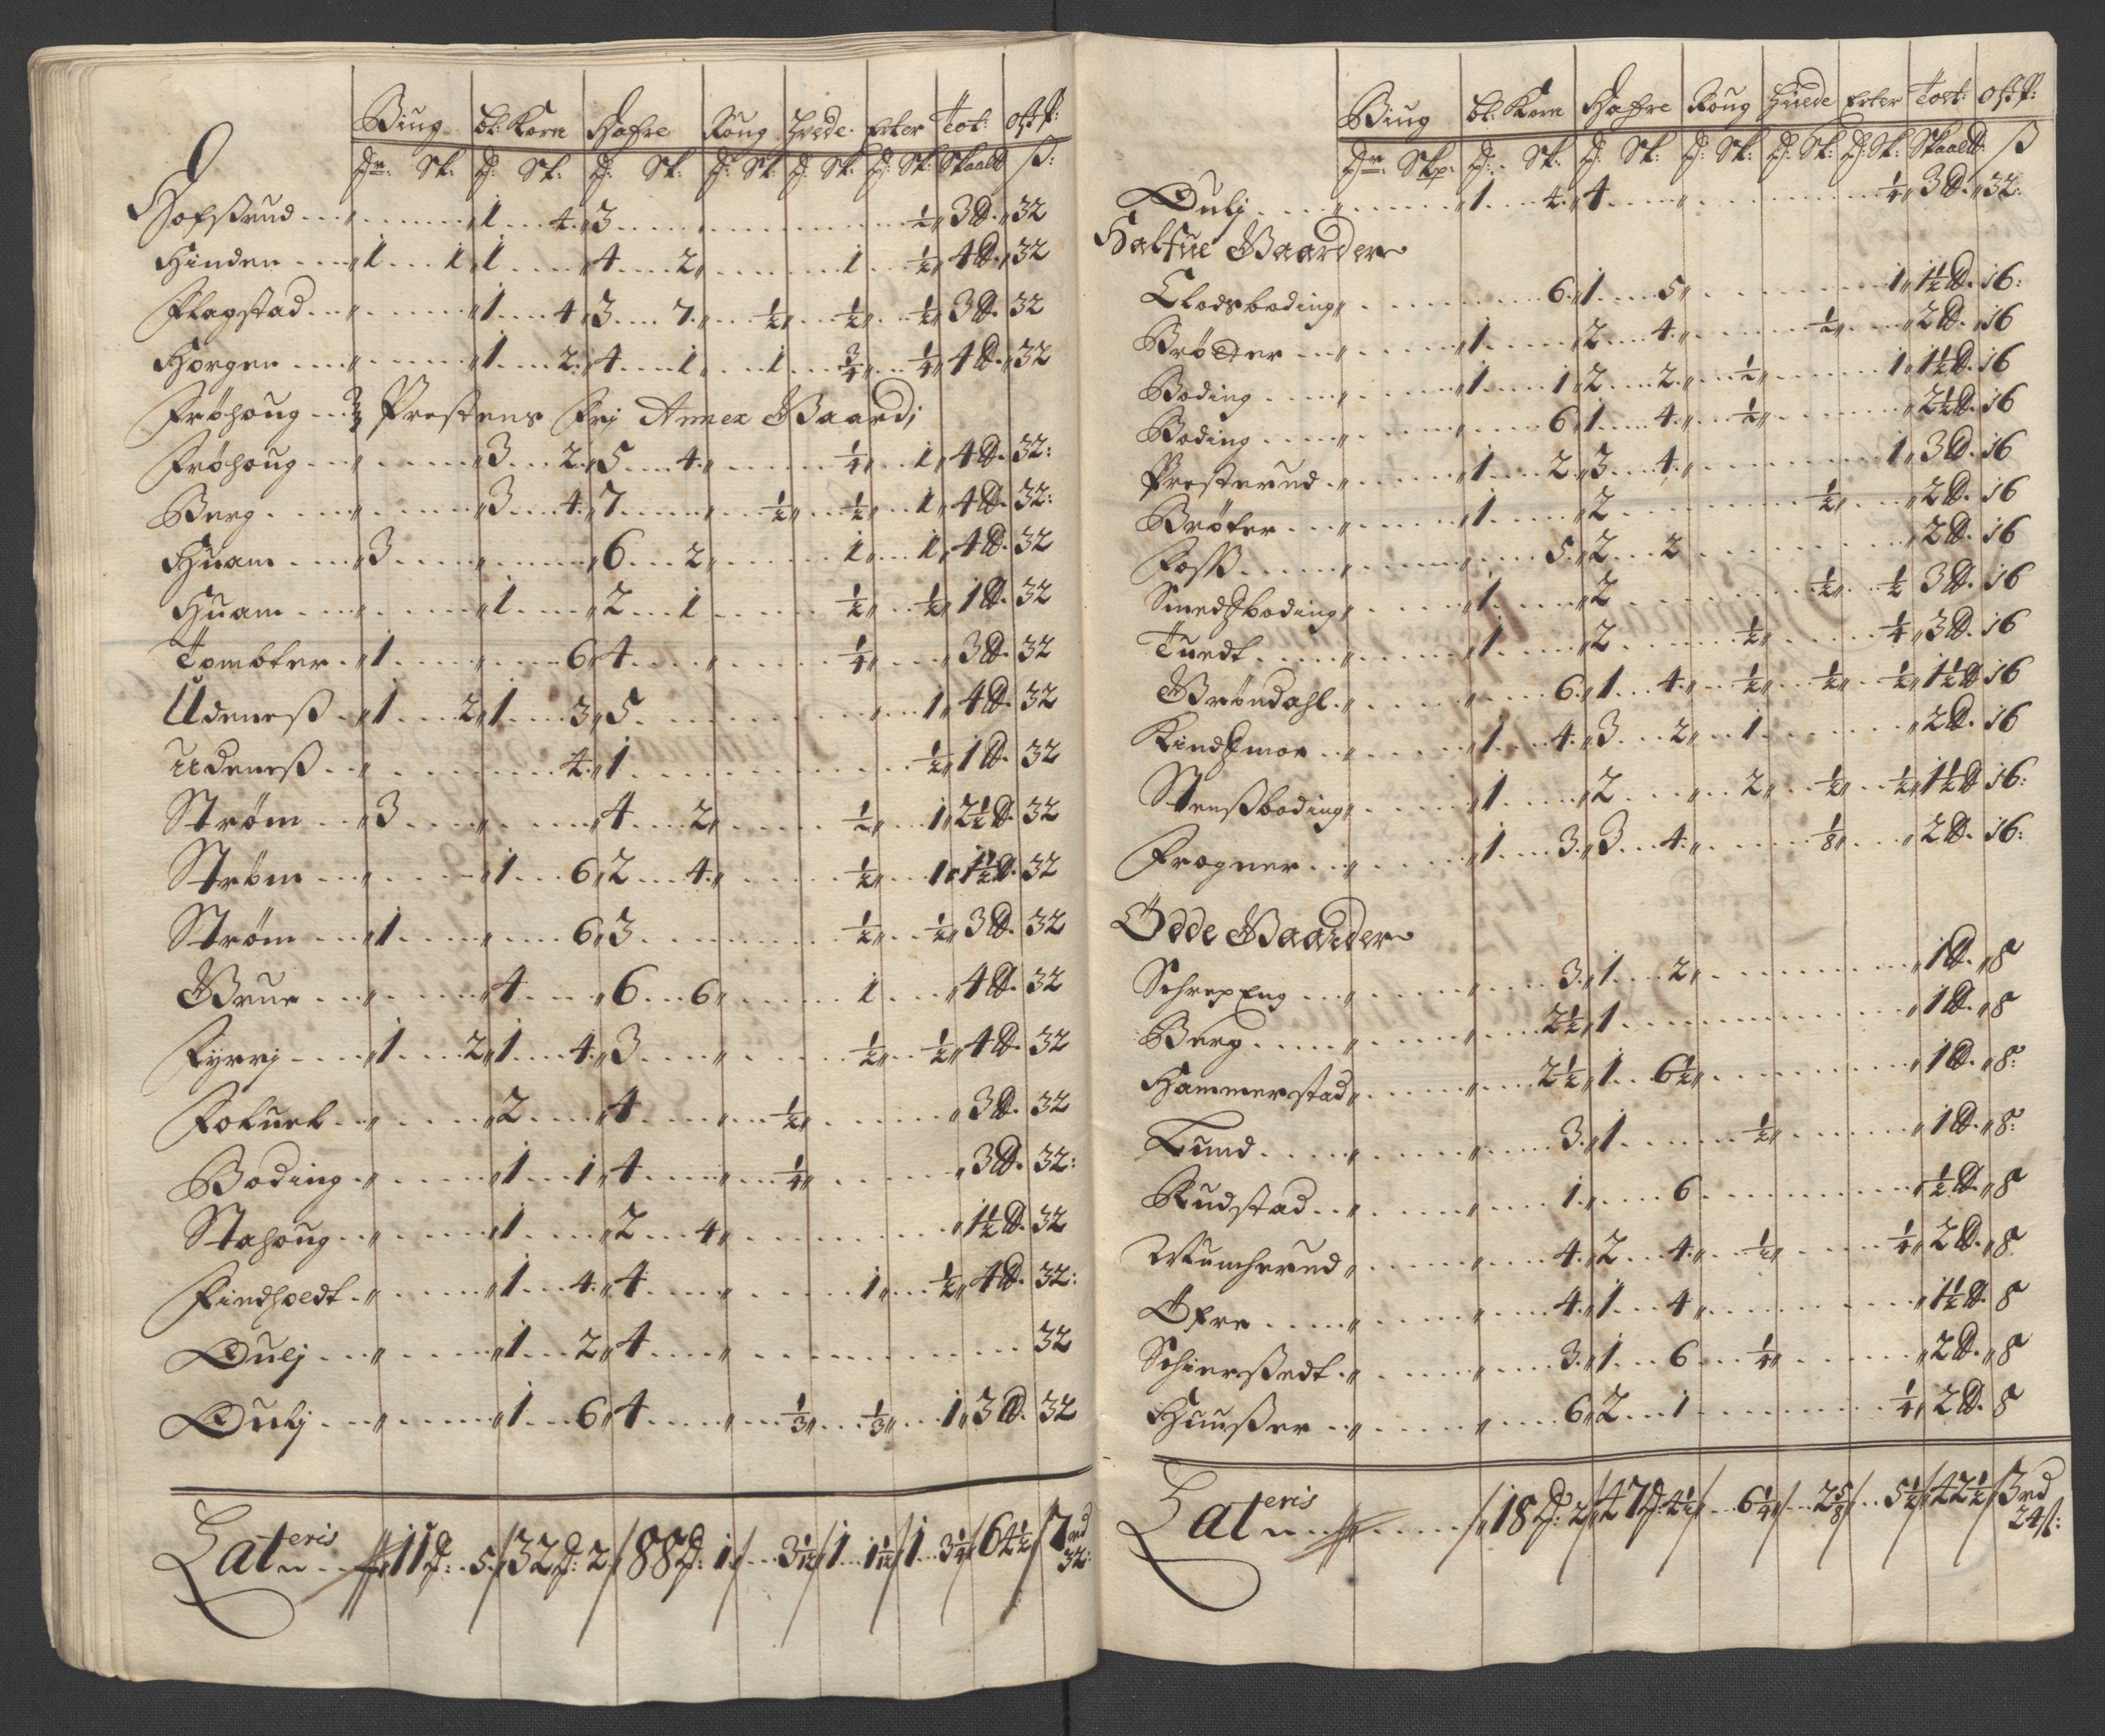 Biug Bl: Korn Hafre Roug Hvede Erter Tot: Ost P:
Dr: Sk: D: Sk: D: Sk: D: Sk: D: Sk: D: Sk: Skaald ß:
Hofsrud ... „ ... „ 1 ... 4 „ 3 ... ½ „ 3 ℔. „ 32
Hinden ... „ 1 ... 1 „ 1 ... „ 4 ... 2 „ ... 1 ... ½ „ 4 ℔. „ 32
Flagstad ... „ ... „ 1 ... 4 „ 3 ... 7 „ ... ½ „ ... ½ „ ... ½ „ 3 ℔. 32
Horgen ... „ ... „ 1 ... 2 „ 4 ... 1 ... 1 ... ¾ „ ... ¼ „ 4 ℔. „ 32
Frøhoug ... Prestens Frj Annex Gaard;
Frøhoug ... „ ... „ 3 ... 2 „ 5 ... 4 „ ... ¼ „ ... 1 „ 4 ℔. 32:
Berg ... „ ... „ 3 ... 4 „ 7 ... „ ... ½ „ ... ½ „ ... 1 „ 4 ℔. 32:
Huam ... „ 3 ... „ ... „ 6 ... 2 „ ... 1 „ ... 1 „ 4 ℔. 32
Huam ... „ ... „ 1 ... „ 2 ... 1 ... ½ „ ... ½ „ 1 ℔. 32
Tombter ... „ 1 ... „ ... 6 „ 4 ... „ ... ¼ „ ... „ 3 ℔. 32
Udeneß ... „ 1 ... 2 „ 1 ... 3 „ 5 ... „ ... 1 „ 4 ℔. 32
Udeneß ... „ ... 4 „ 1 ... ½ „ 1 ℔. 32
Strøm ... „ 3 ... „ ... „ 4 ... 2 „ ... ½ „ ... 1 „ 2½ ℔. 32
Strøm ... „ ... „ 1 ... 6 „ 2 ... 4 „ ... ½ „ ... 1 „ 1½ ℔. 32
Strøm ... „ 1 ... „ ... 6 „ 3 ... ½ „ ... ½ „ 3 ℔. 32
Grue ... „ ... „ 4 ... „ 6 ... 6 „ ... 1 ... „ 4 ℔. 32
Fyrrj ... „ 1 ... 2 „ 1 ... 4 „ 3 ... „ ... ½ „ ... ½ „ 4 ℔. 32
Fokuel ... „ ... „ 2 ... „ 4 ... „ ... ½ „ ... „ 3 ℔. 32
Boding ... „ ... „ 1 ... 1 „ 4 ... „ ... ¼ „ ... „ 3 ℔. 32:
Stahoug ... „ ... „ 1 ... „ 2 ... 4 „ ... „ 1½ ℔. 32
Findholdt ... „ ... „ 1 ... 4 „ 4 ... „ ... 1 „ ... ½ „ 4 ℔. 32:
Oulj ... „ ... „ 1 ... 2 „ 4 ... „ ... 32
Oulj ... „ ... „ 1 ... 6 „ 4 ... „ ... ⅓ „ ... ⅓ „ ... 1 „ 3 ℔. 32
Lateris ... 11 D: 5 / 32 D: 2 / 88 D: 1 / ... 3 1/12 / 1 ... 1 1/12 / 1 ... 3¼ / 64½ / 7 rd 32:
Biug Bl: Korn Hafre Roug Huede Erter Tot: Ost P:
Dr: Skp: D: Sk: D: Sk: D: Sk: D: Sk: D: Sk: Skaald: ß
Oulj ... „ ... „ 1 ... 4 „ 4 ... „ ... ¼ „ 3 ℔. „ 32:
Halfue Gaarder
Clodsboding „ ... 6 „ 1 ... 5 „ ... 1 „ 1½ ℔. 16:
Brøtter ... „ ... „ 1 ... „ 2 ... 4 „ ... ½ „ ... „ 2 ℔. „ 16
Boding ... „ ... „ 1 ... 1 „ 2 ... 2 „ ... ½ „ ... 1 „ 1½ ℔. 16
Boding ... „ ... 6 „ 1 ... 4 „ ... ½ „ ... „ 2½ ℔. 16
Presterud ... „ ... „ 1 ... 2 „ 3 ... 4 „ ... 1 „ 3 ℔. 16
Brøter ... „ ... „ 1 ... „ 2 ... ½ „ ... „ 2 ℔. 16
Foss ... „ ... „ ... 5 „ 2 ... 2 ... „ 2 ℔. 16
Smedsboding „ ... „ 1 ... „ 2 ... ½ „ ... ½ 3 ℔. 16
Tuedt ... „ ... „ 1 ... „ 2 ... ½ „ ... ¼ „ 3 ℔. 16
Grøndahl ... „ ... „ ... 6 „ 1 ... 4 „ ... ½ „ ... ½ „ ... ½ „ 1½ ℔. 16
Kindsmoe ... „ ... „ 1 ... 4 „ 3 ... 2 „ ... 1 ... „ 2 ℔. 16
Stensboding „ ... „ 1 ... „ 2 ... „ ... 2 „ ... ½ „ ... ½ „ 1½ ℔. 16:
Frogner ... „ ... „ 1 ... 3 „ 3 ... 4 „ ... ⅛ „ ... „ 2 ℔. 16:
Ødde Gaarder
SchrepEng ... „ ... „ ... 3 „ 1 ... 2 „ ... „ 1 ℔. „ 8
Berg ... „ ... „ ... 2½ „ 1 ... „ 1 ℔. „ 8
Hammerstad „ ... „ ... 2½ „ 1 ... 6½ „ ... „ 1 ℔. „ 8:
Lund ... „ ... „ ... 3 „ 1 ... ½ „ ... „ 1 ℔. „ 8:
Rudstad ... „ ... „ ... 1 „ ... 6 ... „ ½ ℔. „ 8
Muncherud „ ... „ ... 4 „ 2 ... 4 „ ... ½ „ ... ¼ „ 2 ℔. „ 8
Øfre ... „ ... „ ... 4 „ 1 ... 4 „ ... „ 1½ ℔. 8
Schierstedt ... „ ... „ ... 3 „ 1 ... 6 ... ¼ „ ... „ 2 ℔. „ 8
Hunßer ... „ ... „ ... 6 „ 2 ... 1 ... ¼ „ 2 ℔. 8
Lateris ... / 18 D: 2 / 47 D: 4½ / ... 6¼ / ... 2⅝ / ... 5½ / 42½ / 3 rd 24 ß: